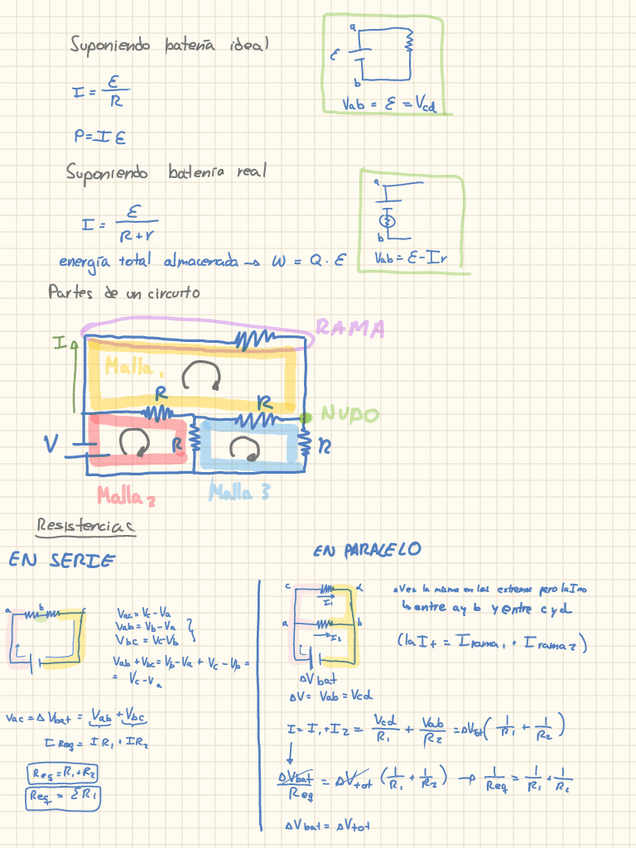 Suponiendo batería ideal
I = ε/R
P = I ε
a
ε
b
Vab = ε = Vcd
Suponiendo batería real
I = ε/(R+r)
energía total almacenada → W = Q · E
a
b
Vab = ε - Ir
Partes de un circuito
RAMA
I
Malla 1
R
R
NUDO
V
R
R
Malla 2
Malla 3
Resistencias
EN SERIE
a b c
Vac = Vc - Va
Vab = Vb - Va
Vbc = Vc - Vb
Vab + Vbc = Vb - Va + Vc - Vb =
= Vc - Va
Vac = Δ Vbat = Vab + Vbc
I · Req = I R1 + I R2
Req = R1 + R2
Req = Σ Ri
EN PARALELO
c d
I1
a b
I2
ΔVbat
ΔV es la misma en los extremos pero la I no
↳ entre a y b y entre c y d
(la It = I rama 1 + I rama 2)
ΔV = Vab = Vcd
I = I1 + I2 = Vcd/R1 + Vab/R2 = ΔVtot (1/R1 + 1/R2)
ΔVbat/Req = ΔVtot (1/R1 + 1/R2) → 1/Req = 1/R1 + 1/R2
ΔVbat = ΔVtot